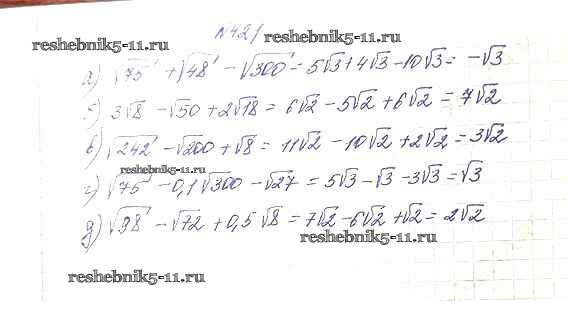 №421
reshebnik5-11.ru reshebnik5-11.ru
а) √75 + √48 − √300 = 5√3 + 4√3 − 10√3 = −√3
б) 3√8 − √50 + 2√18 = 6√2 − 5√2 + 6√2 = 7√2
в) √242 − √200 + √8 = 11√2 − 10√2 + 2√2 = 3√2
reshebnik5-11.ru
г) √75 − 0,1√300 − √27 = 5√3 − √3 − 3√3 = √3
д) √98 − √72 + 0,5√8 = 7√2 − 6√2 + √2 = 2√2
reshebnik5-11.ru
reshebnik5-11.ru